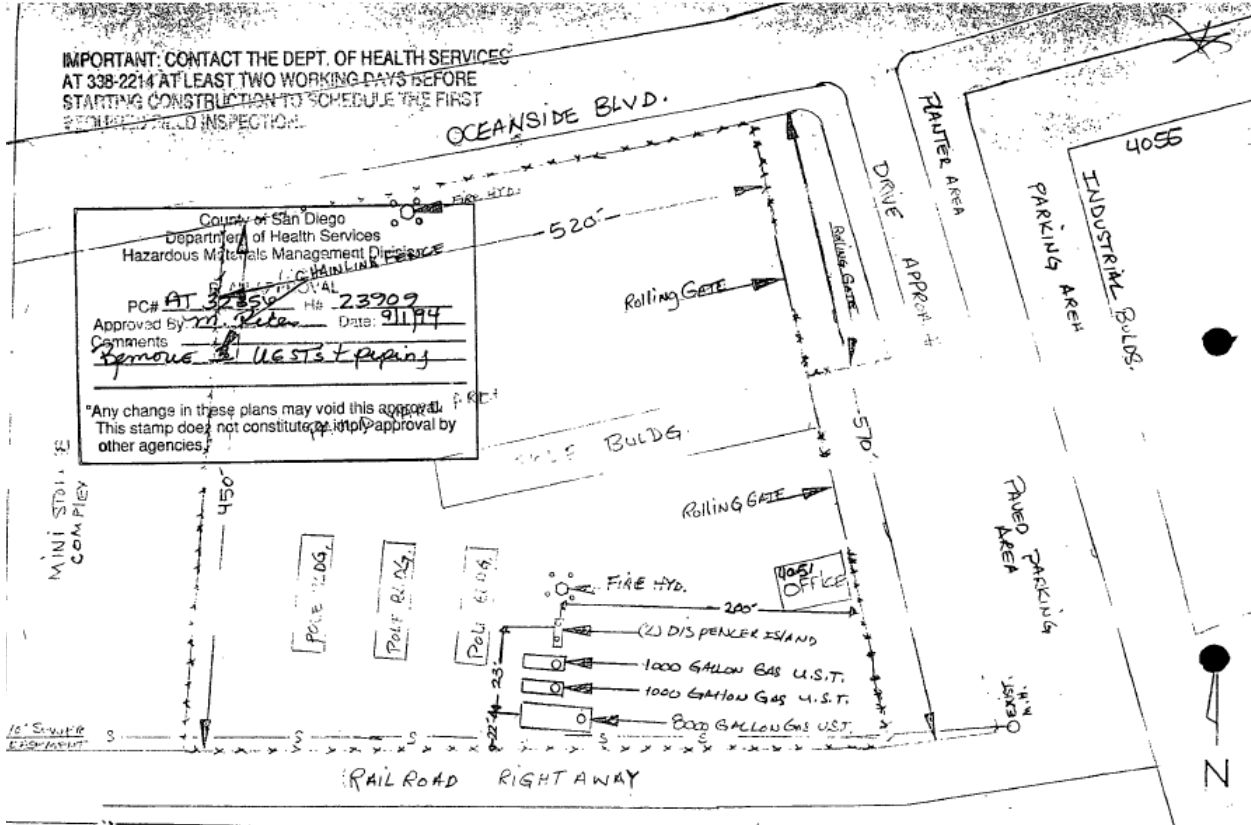 IMPORTANT: CONTACT THE DEPT. OF HEALTH SERVICES
AT 338-2214 AT LEAST TWO WORKING DAYS BEFORE
STARTING CONSTRUCTION TO SCHEDULE THE FIRST
REQUIRED FIELD INSPECTION.
OCEANSIDE BLVD.
FIRE HYD.
County of San Diego
Department of Health Services
Hazardous Materials Management Division
CHAINLINK FENCE
PLAN APPROVAL
PC# AT 32356 H# 23909
Approved By: Date: 9/1/94
Comments
Remove 3 UGSTs + piping
*Any change in these plans may void this approval.
This stamp does not constitute or imply approval by
other agencies.
520'
Rolling GATE
Rolling GATE
DRIVE APPROACH
PLANTER AREA
PARKING AREA
4055
INDUSTRIAL BULDS.
BULDG.
570'
Rolling GATE
PAVED PARKING
AREA
MINI STORAGE
COMPLEX
450'
POLE BLDG.
POLE BLDG.
POLE BLDG.
FIRE HYD.
4051
OFFICE
200'
(2) DISPENCER ISLAND
1000 GALLON GAS U.S.T.
1000 GALLON GAS U.S.T.
8000 GALLON GAS UST.
23'
22'
EXIST
M.H.
10' SEWER
EASEMENT
S S S S S
RAILROAD RIGHT AWAY
N